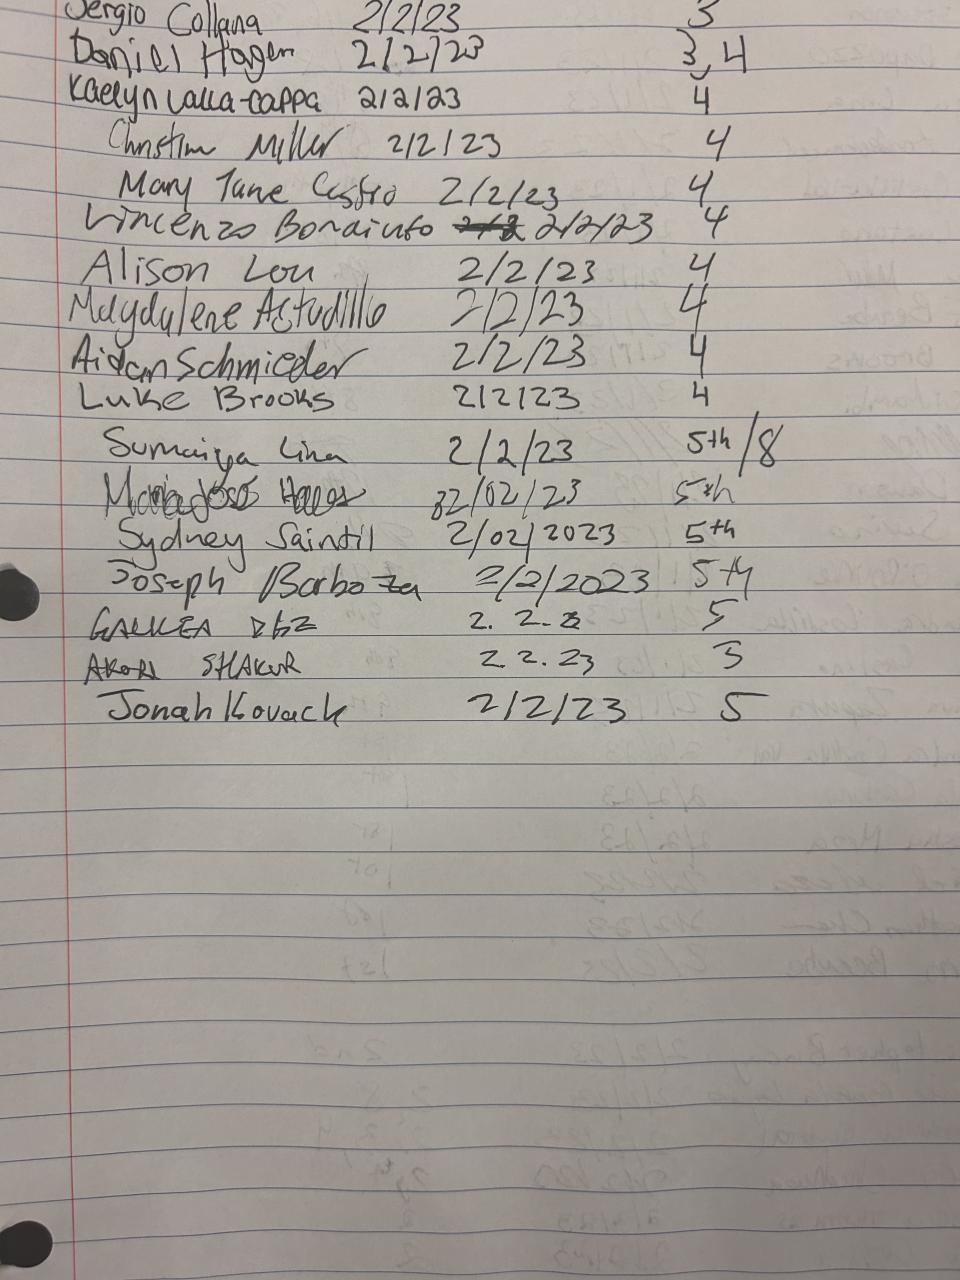 Sergio Collana 2/2/23 3
Daniel Hagen 2/2/23 3,4
Kaelyn Valla-Cappa 2/2/23 4
Miller 2/2/23 4
Mary Jane Castro 2/2/23 4
Vincenzo Bonaiuto 2/2/23 4
Alison Lou 2/2/23 4
Magdylene Astudillo 2/2/23 4
Aidan Schmieder 2/2/23 4
Luke Brooks 2/2/23 4
Sumaiya Lina 2/2/23 5th/8
02/02/23 5th
Sydney Saintil 2/02/2023 5th
Joseph Barboza 2/2/2023 5th
2. 2. 2 5
SHAKUR 2. 2. 23 5
Jonah Kovack 2/2/23 5